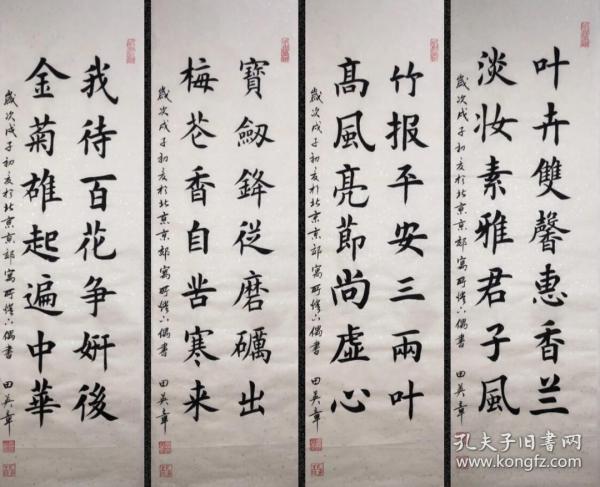 叶卉雙馨惠香兰
淡妆素雅君子風
歲次戊子初夏於北京京郊寓所
偶書
田英章
竹报平安三兩叶
高風亮節尚虛心
歲次戊子初夏於北京京郊寓所
偶書
田英章
寶劔鋒從磨礪出
梅苍香自苦寒来
歲次戊子初夏於北京京郊寓所
偶書
田英章
我待百花争妍後
金菊雄起遍中華
歲次戊子初夏於北京京郊寓所
偶書
田英章
孔夫子旧書网
www.kongfz.com